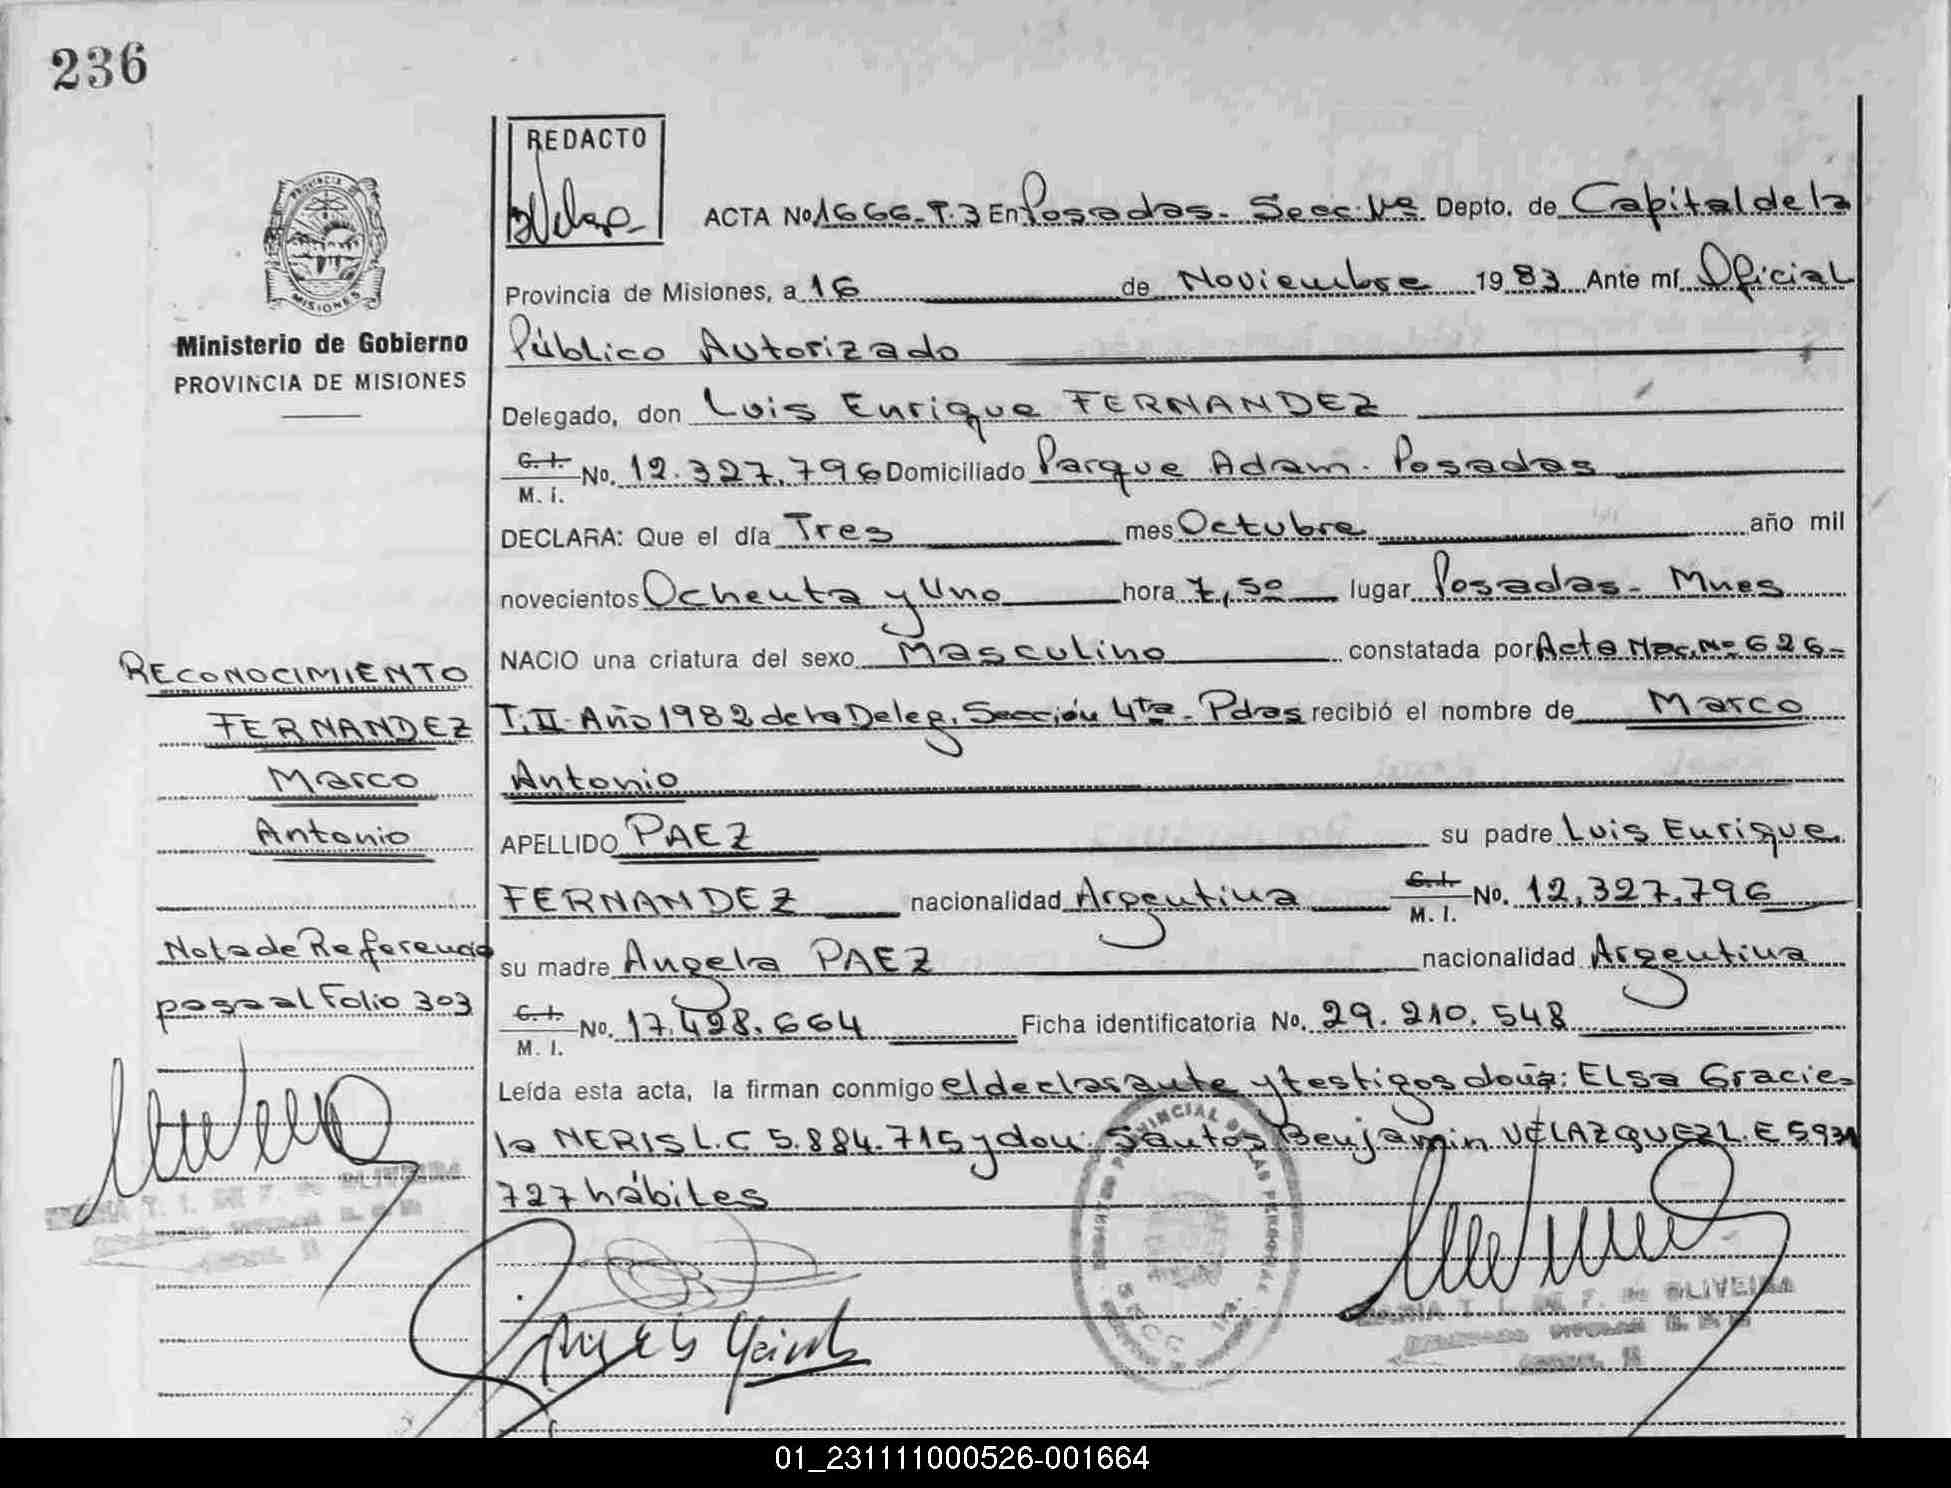 236
REDACTO
ACTA No 1666-T.3 En Posadas- Secc. Depto. de Capital de la
Provincia de Misiones, a 16 de Noviembre 1983 Ante mí Oficial
Público Autorizado
Delegado, don Luis Enrique FERNANDEZ
C. I. No. 12.327.796 Domiciliado Parque Adam. Posadas
M. I.
DECLARA: Que el día Tres mes Octubre año mil
novecientos Ochenta y Uno hora 7,50 lugar Posadas- Mnes
NACIO una criatura del sexo Masculino constatada por Acta Nac. No 626-
T, II- Año 1982 de la Deleg. Sección 4ta- Pdas recibió el nombre de Marco
Antonio
APELLIDO PAEZ su padre Luis Enrique
FERNANDEZ nacionalidad Argentina C. I. No. 12.327.796
M. I.
su madre Angela PAEZ nacionalidad Argentina
C. I. No. 17.428.664 Ficha identificatoria No. 29.210.548
M. I.
Leída esta acta, la firman conmigo el declarante y testigos doña: Elsa Gracie-
la NERIS L.C 5.884.715 y don: Santos Benjamin VELAZQUEZ L.E 5931
727 hábiles
PROVINCIA DE
MISIONES
Ministerio de Gobierno
PROVINCIA DE MISIONES
RECONOCIMIENTO
FERNANDEZ
Marco
Antonio
Nota de Referencia
pasa al Folio 303
DE F. de OLIVEIRA
MARIA T. I. DE F. de OLIVEIRA
01_231111000526-001664